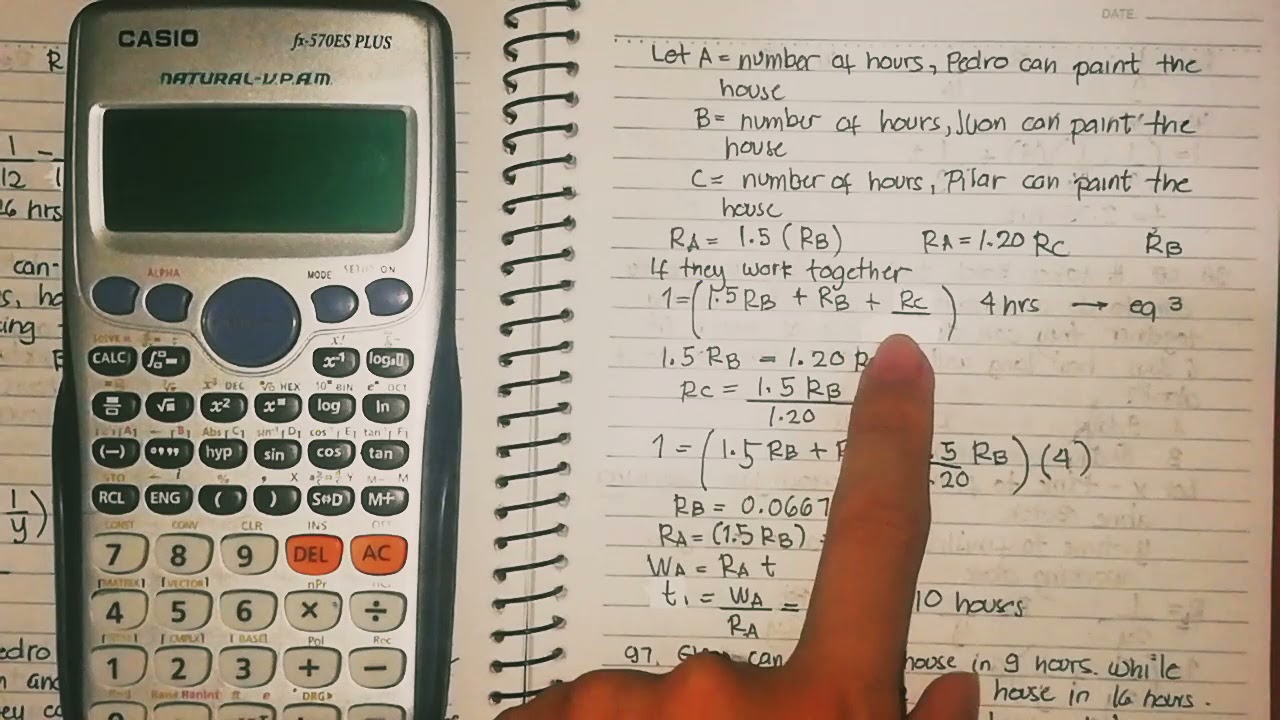 CASIO fx-570ES PLUS
NATURAL-V.P.A.M.
ALPHA MODE SETUP ON
CALC x⁻¹
x² log ln
(−) hyp sin cos tan
RCL ENG ( ) S⇔D M+
CONST CONV CLR INS
7 8 9 DEL AC
[MATRIX] [VECTOR] nPr
4 5 6 × ÷
[CMPLX] [BASE] Pol Rec
1 2 3 + −
DRG▸
1
12
26 hrs
can-
(1/y)
edro
DATE:
Let A = number of hours, Pedro can paint the
house
B = number of hours, Juan can paint the
house
C = number of hours, Pilar can paint the
house
RA = 1.5 (RB) RA = 1.20 RC RB
If they work together
1 = (1.5 RB + RB + RC) 4 hrs → eq 3
1.5 RB = 1.20 R
RC = 1.5 RB
1.20
1 = (1.5 RB + .5 RB) (4)
.20
RB = 0.0667
RA = (1.5 RB)
WA = RA t
t₁ = WA = 10 hours
RA
97. can house in 9 hours. while
house in 16 hours.